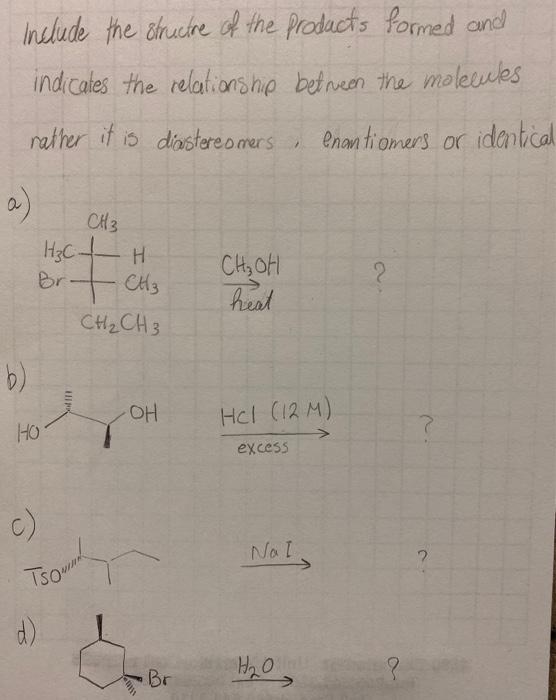 Include the structre of the products formed and
indicates the relationship between the molecules
rather it is diastereomers , enantiomers or identical
a)
CH3
H3C H
Br CH3
CH2CH3
CH3OH
heat
?
b)
HO
OH
HCl (12 M)
excess
?
c)
TSO
NaI
?
d)
Br
H2O
?